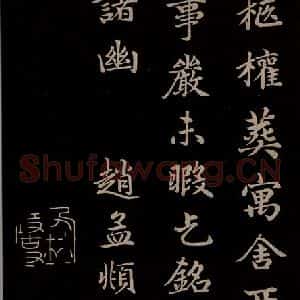 柩權葬寓舍
事嚴未暇乞銘
諸幽 趙孟頫
Shufawang.CN